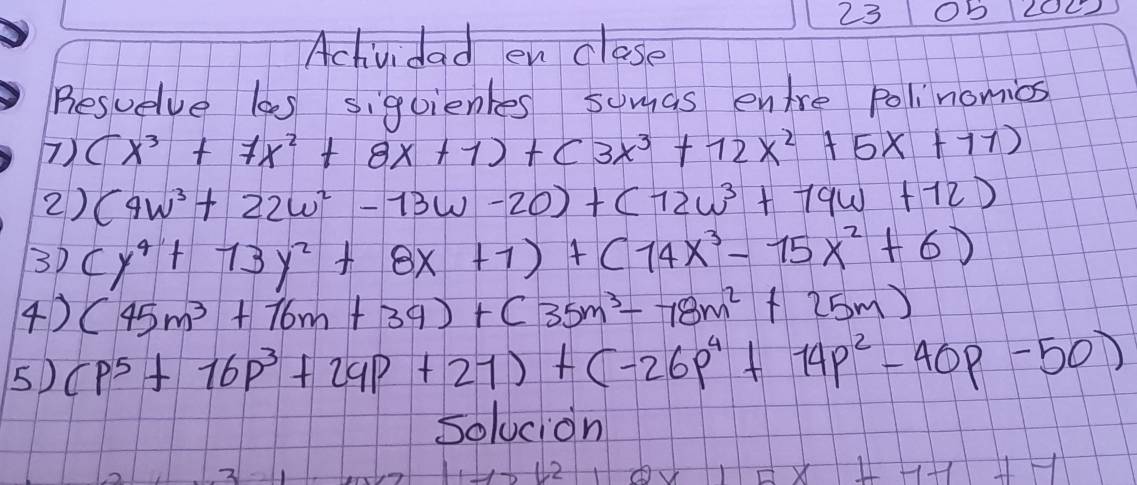 23 05
Actividad en clase
Resuelve las siguientes sumas entre polinomios
1) (x³ + 7x² + 8x + 1) + (3x³ + 12x² + 5x + 11)
2) (9w³ + 22w² - 13w - 20) + (12w³ + 19w + 12)
3) (y⁴ + 13y² + 8x + 1) + (14x³ - 15x² + 6)
4) (45m³ + 16m + 39) + (35m³ - 18m² + 25m)
5) (p⁵ + 16p³ + 29p + 21) + (-26p⁴ + 14p² - 40p - 50)
Solución